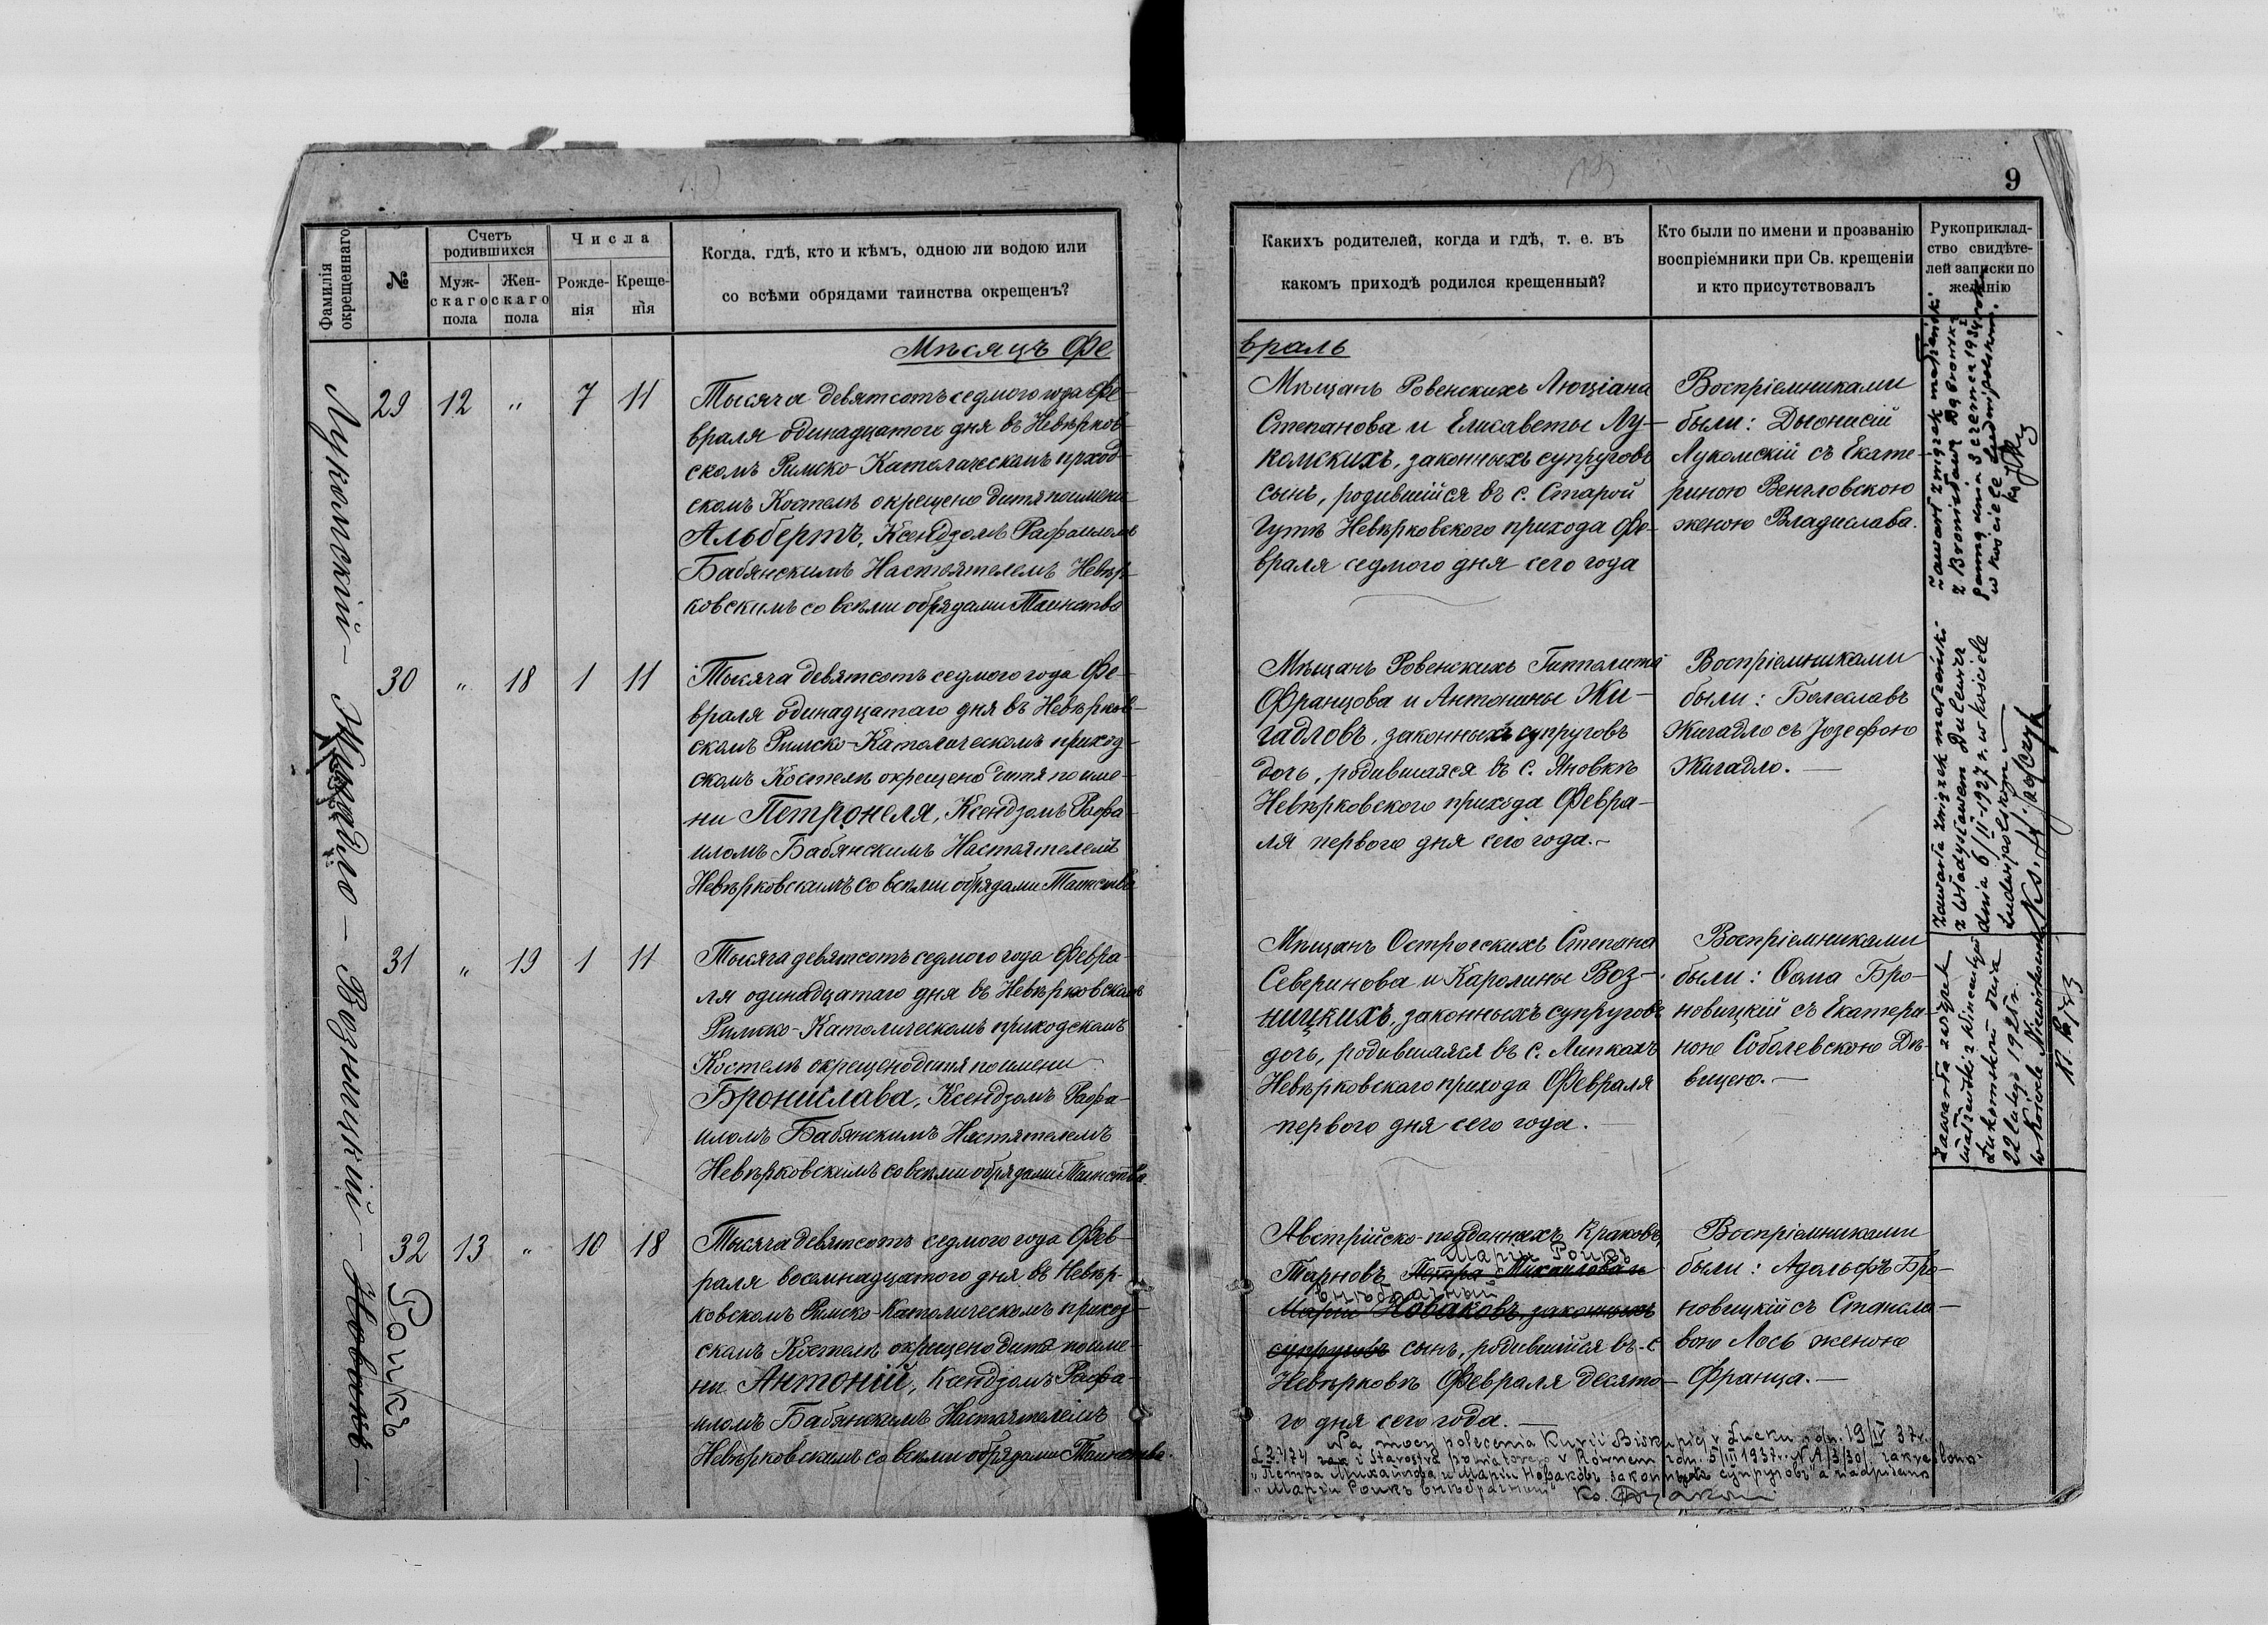 9
Фамилія окрещеннаго
№
Счетъ родившихся
Мужскаго пола
Женскаго пола
Числа
Рожденія
Крещенія
Когда, гдѣ, кто и кѣмъ, одною ли водою или
со всѣми обрядами таинства окрещенъ?
Какихъ родителей, когда и гдѣ, т. е. въ
какомъ приходѣ родился крещенный?
Кто были по имени и прозванію
воспріемники при Св. крещеніи
и кто присутствовалъ
Рукоприклад-
ство свидѣте-
лей записки по
желанію
Мѣсяцъ Фе
враль
Лукомскій
29 12 " 7 11
Тысяча девятсотъ седмого года Фе-
враля одинадцатого дня въ Невѣрков-
скомъ Римско-Католическомъ приход-
скомъ Костелѣ окрещено дитя по имени
Альбертъ, Ксендзомъ Рафаиломъ
Бабянскимъ Настоятелемъ Невѣр-
ковскимъ со всѣми обрядами Таинства
Мѣщанъ Ровенскихъ Люціана
Степанова и Елисаветы Лу-
комскихъ, законныхъ супруговъ
сынъ, родившійся въ с. Старой
Гутѣ Невѣрковского прихода Фе-
враля седмого дня сего года
Воспріемниками
были: Дыонисій
Лукомскій съ Екате-
риною Венгловскою
женою Владислава.
Zawarł związek małżeński
z Bronisławą Dąbrowską
panną dnia 5 czerwca 1934 roku
w kościele Ludwipolskim.
30 " 18 1 11
Тысяча девятсотъ седмого года Фе-
враля одинадцатаго дня въ Невѣрков-
скомъ Римско-Католическомъ приход-
скомъ Костелѣ окрещено дитя по име-
ни Петронеля, Ксендзомъ Рафа-
иломъ Бабянскимъ Настоятелемъ
Невѣрковскимъ со всѣми обрядами Таинства
Мѣщанъ Ровенскихъ Гипполита
Францова и Антонины Жи-
гадловъ, законныхъ супруговъ
дочь, родившаяся въ с. Яновкѣ
Невѣрковского прихода Февра-
ля первого дня сего года.-
Воспріемниками
были: Болеславъ
Жигадло съ Іозефою
Жигадло.
Zawarła związek małżeński
z Władysławem Dulewicz
dnia 6/II-1927 r. w kościele
Ludwipolskim
Возницкій
31 " 19 1 11
Тысяча девятсотъ седмого года Февра-
ля одинадцатаго дня въ Невѣрковскомъ
Римско-Католическомъ приходскомъ
Костелѣ окрещено дитя по имени
Брониславa, Ксендзомъ Рафа-
иломъ Бабянскимъ Настоятелемъ
Невѣрковскимъ со всѣми обрядами Таинства.
Мѣщанъ Острогскихъ Степана
Северинова и Каролины Воз-
ницкихъ, законныхъ супруговъ
дочь, родившаяся въ с. Липкахъ
Невѣрковскаго прихода Февраля
первого дня сего года.
Воспріемниками
были: Сама Бро-
новицкій съ Екатери-
ною Соболевскою Дѣ-
вицею.
Zawarła związek
małżeński z Wincentym
Łukomskim dnia
22 lutego 1925 r.
w kościele Niewirkowskim
Новакъ
Роикъ
32 13 " 10 18
Тысяча девятсотъ седмого года Фев-
раля восемнадцатого дня въ Невѣр-
ковскомъ Римско-Католическомъ приход-
скомъ Костелѣ окрещено дитя по име-
ни Антоній, Ксендзомъ Рафа-
иломъ Бабянскимъ Настоятелемъ
Невѣрковскимъ со всѣми обрядами Таинства.
Австрійско-подданныхъ Краковъ,
Маріи Роикъ
Тарновъ Петра Михайлова и
внѣбрачный
Маріи Новаковъ законныхъ
супруговъ сынъ, родившійся въ с.
Невѣрковѣ Февраля десято-
го дня сего года.
Воспріемниками
были: Адольфъ Бро-
новицкій съ Станисла-
вою Лось женою
Франца.
Na mocy polecenia Kurii Biskupiej w Łucku z dn. 19/IV 37 r.
Starostwa powiatowego w Równem z dn. 5/III 1937 r. zakreślono
"Петра Михайлова и Маріи Новаковъ законныхъ супруговъ" a nadpisano
"Маріи Роикъ внѣбрачный"